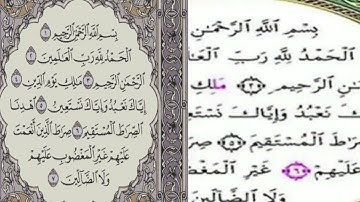 بِسْمِ اللَّهِ الرَّحْمَٰنِ الرَّحِيمِ ١
الْحَمْدُ لِلَّهِ رَبِّ الْعَالَمِينَ ٢
الرَّحْمَٰنِ الرَّحِيمِ ٣ مَالِكِ يَوْمِ الدِّينِ ٤
إِيَّاكَ نَعْبُدُ وَإِيَّاكَ نَسْتَعِينُ ٥ اهْدِنَا
الصِّرَاطَ الْمُسْتَقِيمَ ٦ صِرَاطَ الَّذِينَ أَنْعَمْتَ
عَلَيْهِمْ غَيْرِ الْمَغْضُوبِ عَلَيْهِمْ
وَلَا الضَّالِّينَ ٧
بِسْمِ اللَّهِ الرَّحْمَٰنِ
الْحَمْدُ لِلَّهِ رَبِّ
الرَّحِيمِ ٣ مَلِكِ
نَعْبُدُ وَإِيَّاكَ
الْمُسْتَقِيمَ ٥ صِرَاطَ
عَلَيْهِمْ ٦ غَيْرِ
وَلَا الضَّالِّينَ